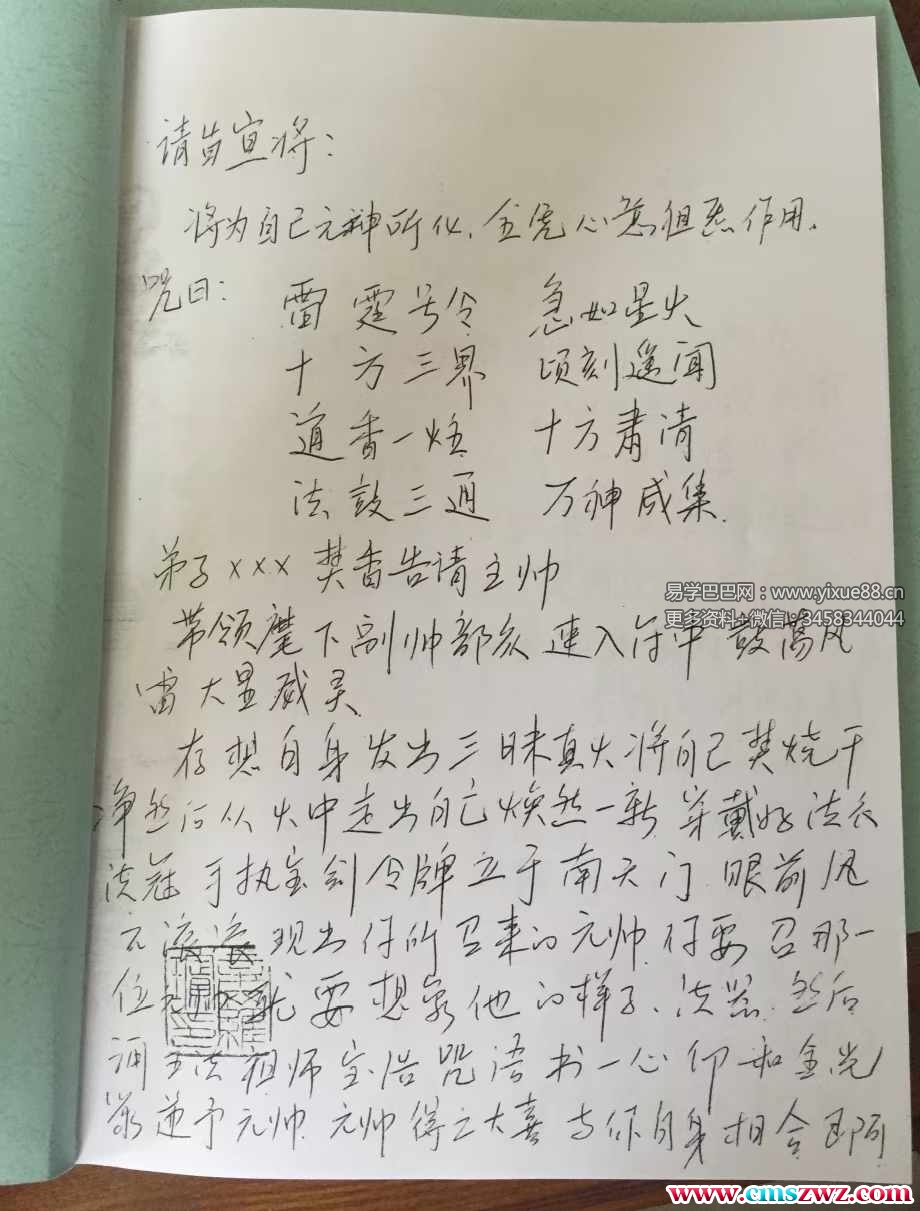 请旨宣将：
将为自己元神所化、全凭心意 作用、
咒曰： 雷霆号令 急如星火
十方三界 顷刻遥闻
道香一炷 十方肃清
法鼓三通 万神咸集
弟子xxx 焚香告请主帅
带领麾下副帅部众 速入符中 鼓荡风
雷大显威灵
存想自身发出三昧真火将自己焚烧干
净然后从火中走出自己焕然一新 穿戴好法衣
法冠 手执宝剑令牌立于南天门 眼前风
云滚滚 现出你所召来的元帅 你要召那一
位 就要想象他的样子、法器、然后
诵主法祖师宝诰咒语书一心印和金光
篆递予元帅 元帅得之大喜与你自身相合即可
易学巴巴网：www.yixue88.cn
更多资料+微信：3458344044
www.cmszwz.com